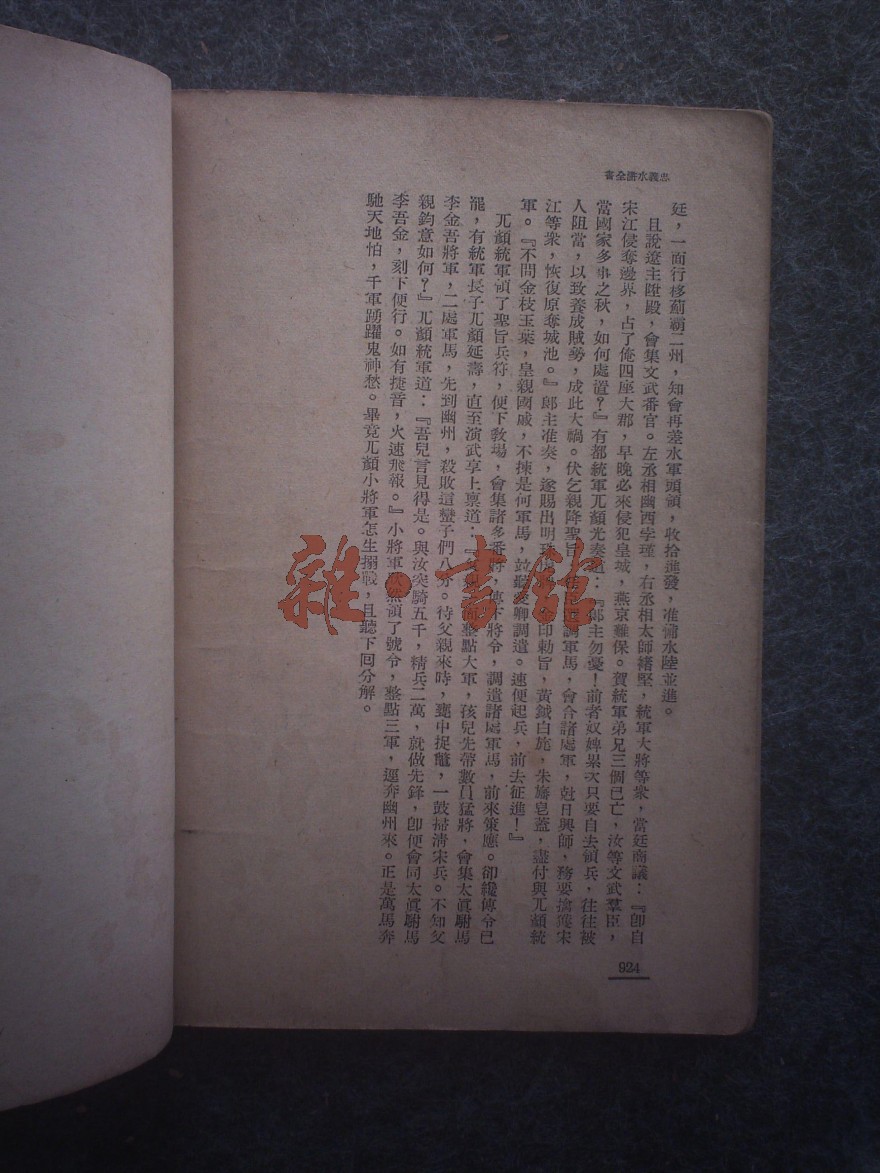 忠義水滸全書
廷，一面行移薊霸二州，知會再差水軍頭領，收拾進發，准備水陸並進。
且說遼主陞殿，會集文武番官。左丞相幽西孛瑾，右丞相太師褚堅，統軍大將等衆，當廷商議：『卽自
宋江侵奪邊界，占了俺四座大郡，早晚必來侵犯皇城，燕京難保。賀統軍弟兄三個已亡，汝等文武羣臣，
當國家多事之秋，如何處置？』有都統軍兀顏光奏道：『郞主勿憂！前者奴婢累次只要自去領兵，往往被
人阻當，以致養成賊勢，成此大禍。伏乞親降聖旨，調軍馬，會合諸處軍，尅日興師，務要擒獲宋
江等衆，恢復原奪城池。』郞主准奏，遂賜出明珠印勅旨，黃鉞白旄，朱旛皂蓋，盡付與兀顏統
軍。『不問金枝玉葉，皇親國戚，不揀是何軍馬，並聽愛卿調遣。速便起兵，前去征進！』
兀顏統軍領了聖旨兵符，便下敎場，會集諸多番將，傳下將令，調遣諸處軍馬，前來策應。卻纔傳令已
罷，有統軍長子兀顏延壽，直至演武亭上稟道：『整點大軍，孩兒先帶數員猛將，會集太眞駙馬
李金吾將軍，二處軍馬，先到幽州，殺敗這蠻子們八分。待父親來時，甕中捉鼈，一鼓掃淸宋兵。不知父
親鈞意如何？』兀顏統軍道：『吾兒言見得是。與汝突騎五千，精兵二萬，就做先鋒，卽便會同太眞駙馬
李吾金，刻下便行。如有捷音，火速飛報。』小將軍欣然領了號令，整點三軍，逕奔幽州來。正是萬馬奔
馳天地怕，千軍踴躍鬼神愁。畢竟兀顏小將軍怎生搦戰，且聽下囘分解。
924
雜·書館